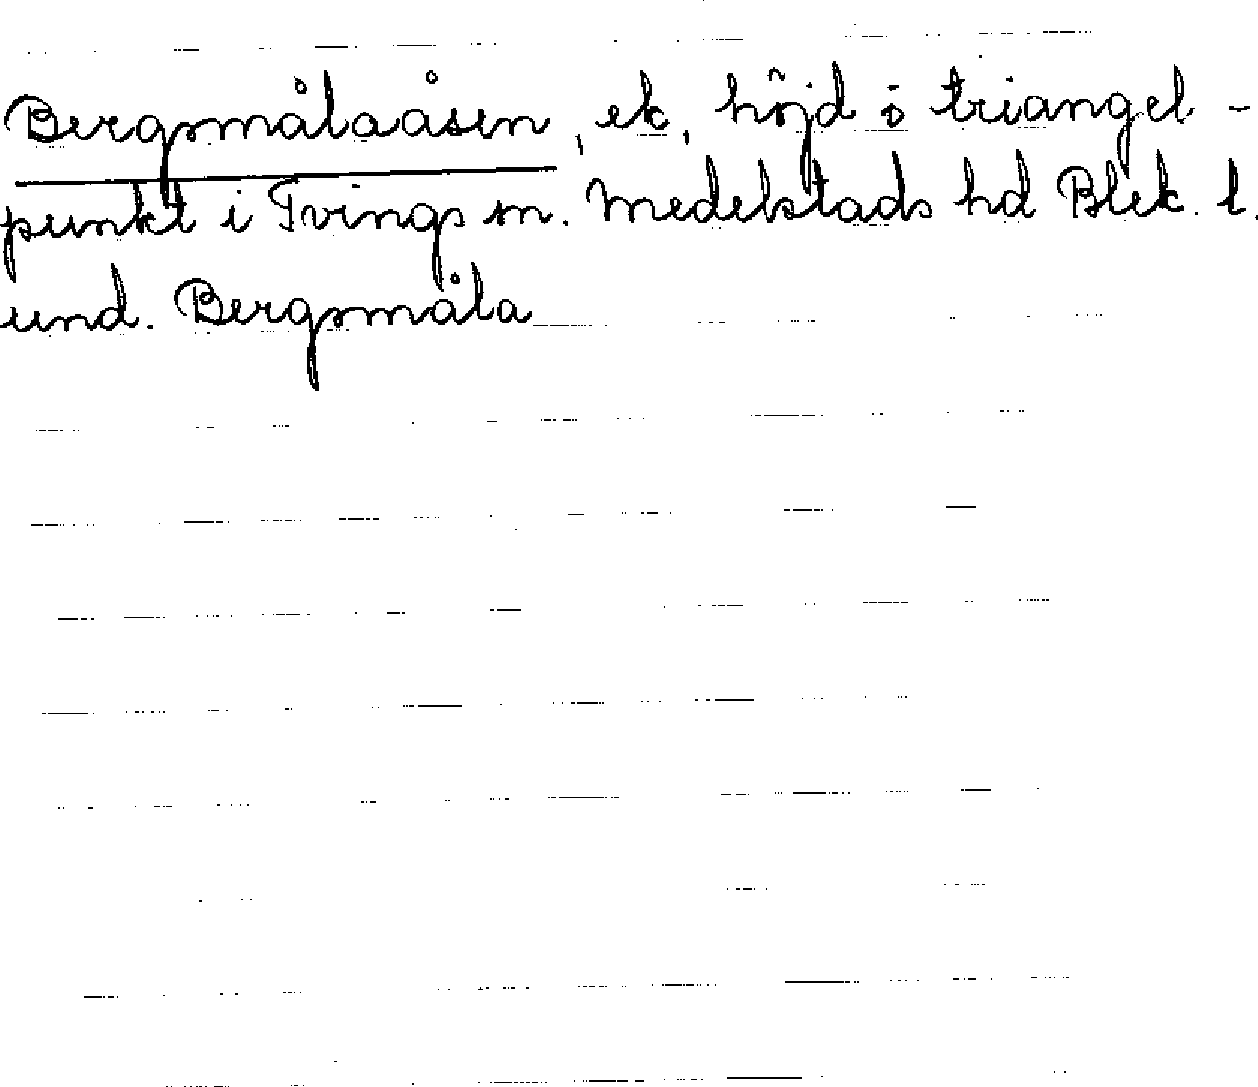 Bergsmålaåsen, ek, höjd o triangel-
punkt i Tvings sn. Medelstads hd Blek. l.
und. Bergsmåla